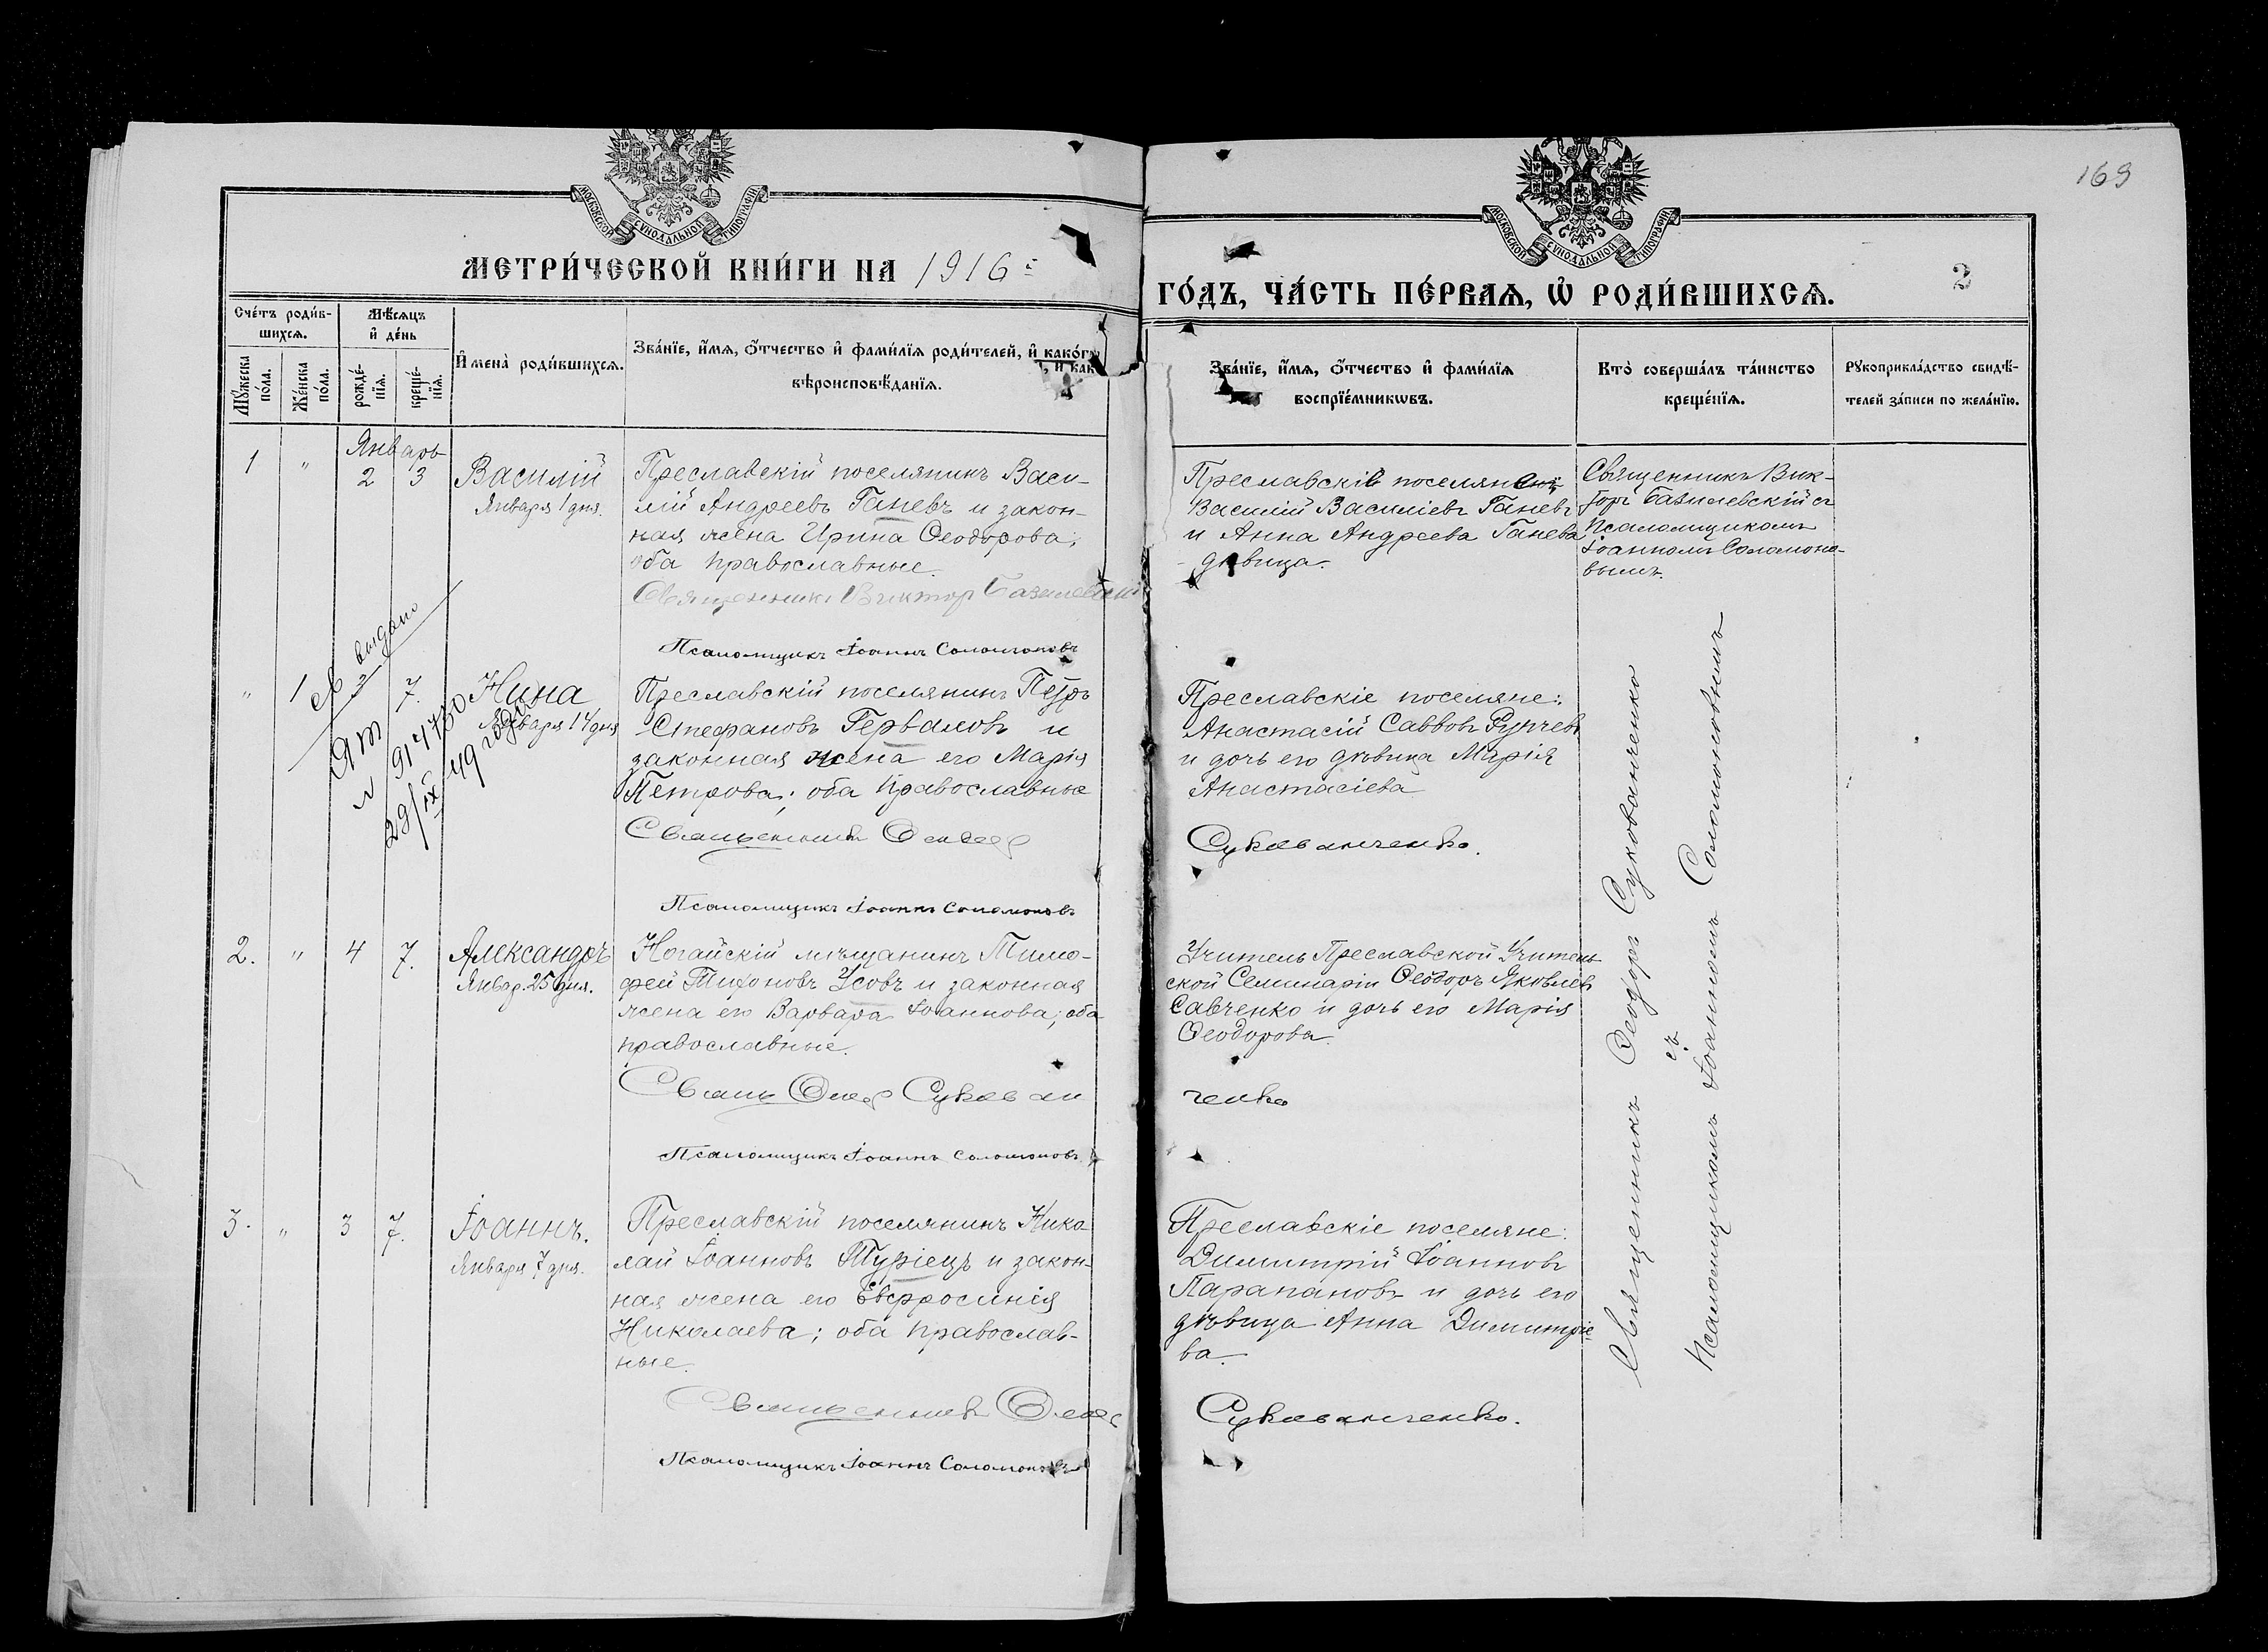 169
МОСКОВСКОЙ СѴНОДАЛЬНОЙ ТИПОГРАФІИ
МОСКОВСКОЙ СѴНОДАЛЬНОЙ ТИПОГРАФІИ
МЕТРИ́ЧЕСКОЙ КНИ́ГИ НА 1916 г.
ГО́ДЪ, ЧА́СТЬ ПЕ́РВАѦ, Ѡ҆ РОДИ́ВШИХСѦ.
2
Сче́тъ роди́в-
шихсѧ.
Мѣ́сѧцъ
и҆ де́нь
Мꙋ́жеска
по́ла.
Же́нска
по́ла.
рожде́-
нїѧ.
креще́-
нїѧ.
И҆мена̀ роди́вшихсѧ.
Зва́нїе, и҆́мѧ, ѻ҆́тчество и҆ фами́лїѧ роди́телей, и҆ како́гѡ
вѣроисповѣ́данїѧ.
Зва́нїе, и҆́мѧ, ѻ҆́тчество и҆ фами́лїѧ
воспрїе́мникѡвъ.
Кто̀ соверша́лъ та́инство
креще́нїѧ.
Рꙋкоприкла́дство свидѣ́-
телей за́писи по жела́нїю.
Январь
1 " 2 3 Василій
Января 1 дня.
Преславскій поселянинъ Васи-
лій Андреевъ Ганевъ и закон-
ная жена Ирина Ѳеодорова;
оба православные.
Священникъ Викторъ Базилевскій
Псаломщикъ Іоаннъ Соломоновъ
Преславскіе поселяне:
Василій Василіевъ Ганевъ
и Анна Андреева Ганева
дѣвица.
Священникъ Вик-
торъ Базилевскій съ
Псаломщикомъ
Іоанномъ Соломоно-
вымъ.
" 1 2 7. Нина
Января 14 дня
выдано
29/IX 49 года
Преславскій поселянинъ Петръ
Стефановъ Гервалов и
законная жена его Марія
Петрова; оба православные
Священникъ Ѳеодоръ
Сукованченко.
Псаломщикъ Іоаннъ Соломоновъ
Преславскіе поселяне:
Анастасій Саввовъ Рупчевъ
и дочь его дѣвица Марія
Анастасіева
2. " 4 7. Александръ
Январ. 25 дня.
Ногайскій мѣщанинъ Тимо-
фей Тихоновъ Усовъ и законная
жена его Варвара Іоаннова; оба
православные.
Свящ Ѳеод Сукован
ченко
Псаломщикъ Іоаннъ Соломоновъ
Учитель Преславской Учитель
ской Семинаріи Ѳеодоръ Яковлев
Савченко и дочь его Марія
Ѳеодорова.
3. " 3 7. Іоаннъ.
Января 7 дня.
Преславскій поселянинъ Нико
лай Іоанновъ Туріецъ и закон-
ная жена его Евфросинія
Николаева; оба православ-
ные.
Священникъ Ѳеодо
Сукованченко.
Псаломщикъ Іоаннъ Соломоновъ
Преславскіе поселяне:
Димитрій Іоаннов
Парапановъ и дочь его
дѣвица Анна Димитріе
ва.
Священникъ Ѳеодоръ Сукованченко
съ
Псаломщикомъ Іоанномъ Соломоновымъ